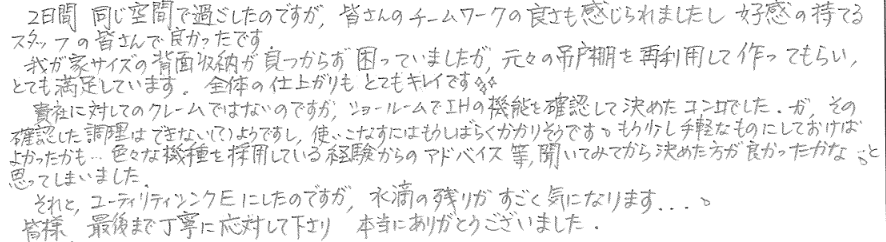 2日間 同じ空間で過ごしたのですが、皆さんのチームワークの良さも感じられましたし 好感の持てる
スタッフの皆さんで良かったです。
我が家サイズの背面収納が見つからず 困っていましたが、元々の吊戸棚を再利用して作ってもらい、
とても満足しています。全体の仕上がりも とてもキレイです
貴社に対してのクレームではないのですが、ショールームでIHの機能を確認して決めたコンロでした。が、その
確認した調理はできない(?)ようですし、使いこなすにはもうしばらくかかりそうです。もう少し手軽なものにしておけば
よかったかも… 色々な機種を採用している経験からのアドバイス等、聞いてみてから決めた方が良かったかな。と
思ってしまいました。
それと、ユーティリティシンクEにしたのですが、水滴の残りがすごく気になります....。
皆様、最後まで丁寧に応対して下さり 本当にありがとうございました。